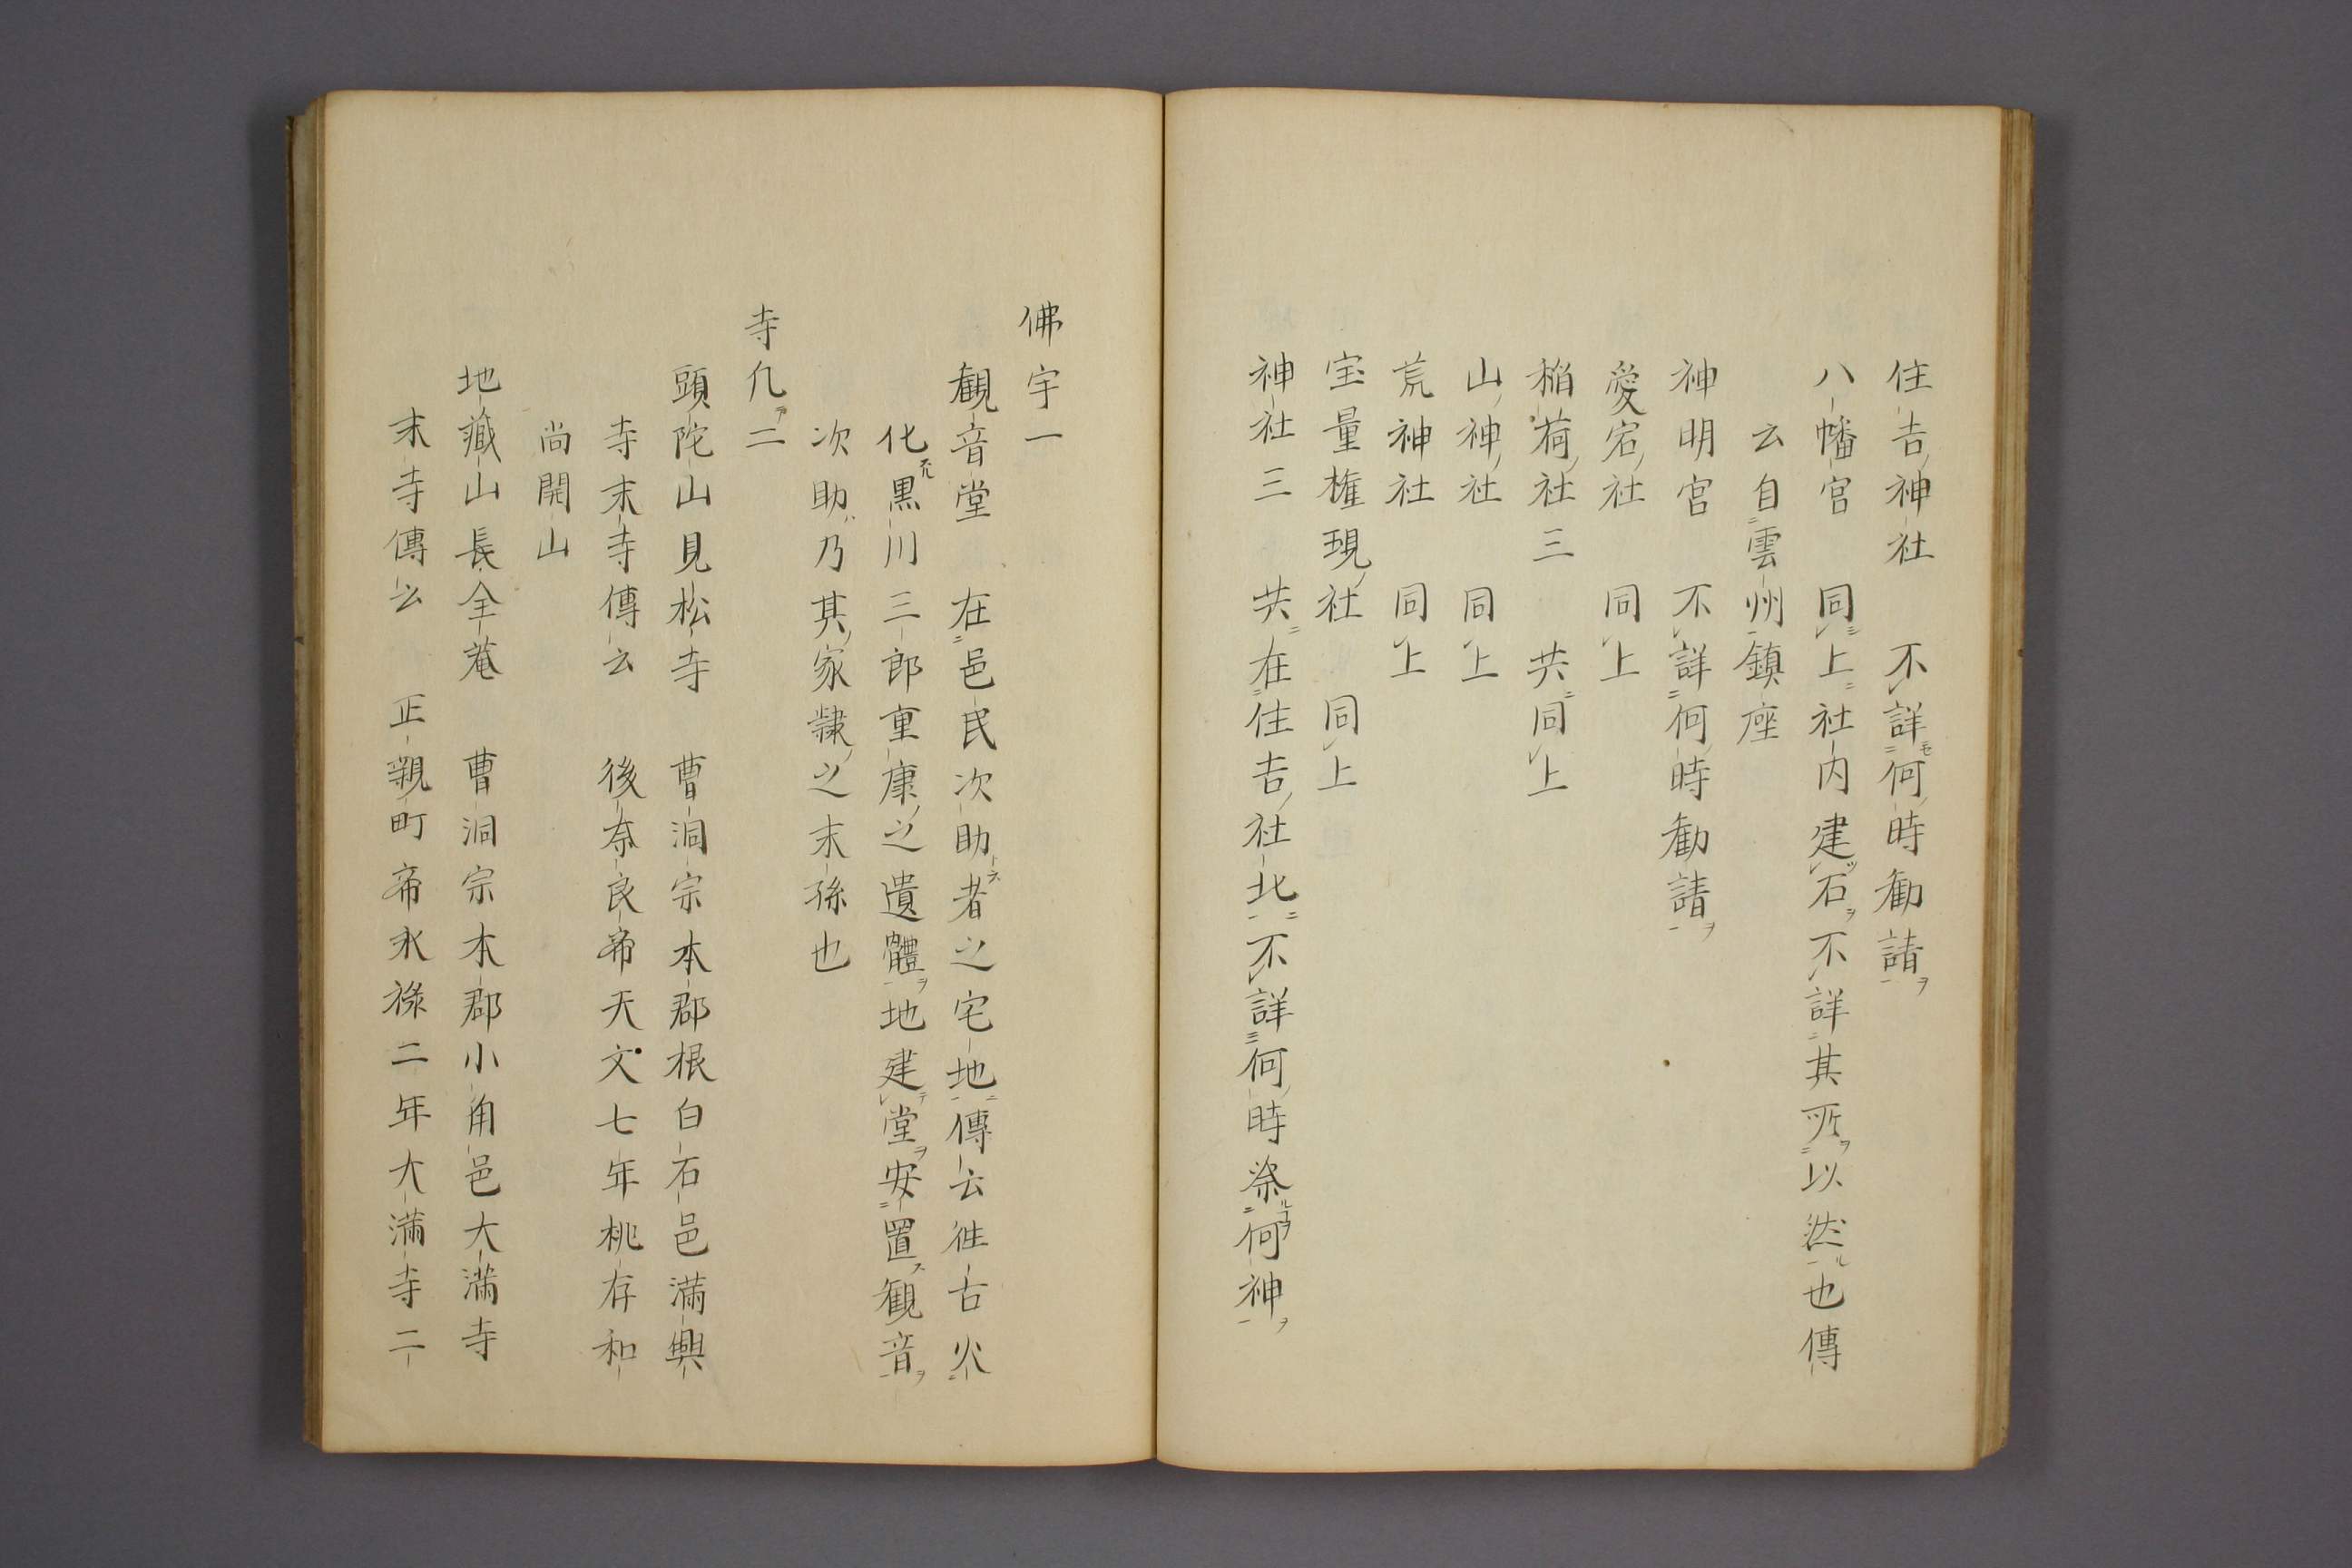 住吉神社　不詳何時勧請
八幡宮　同上社内建石不詳其所以然也傳
云自雲州鎮座
神明宮　不詳何時勧請
愛宕社　同上
稲荷社三　共同上
山神社　同上
荒神社　同上
宝量権現社　同上
神社三　共在住吉社北不詳何時祭何神
佛宇一
観音堂　在邑民次助者之宅地傳云徃古火
化黒川三郎重康之遺體地建堂安置観音
次助乃其家隷之末孫也
寺凢二
頭陀山見松寺　曹洞宗本郡根白石邑満興
寺末寺傳云　後奈良帝天文七年桃存和
尚開山
地藏山長全菴　曹洞宗本郡小角邑大満寺
末寺傳云　正親町帝永禄二年大満寺二